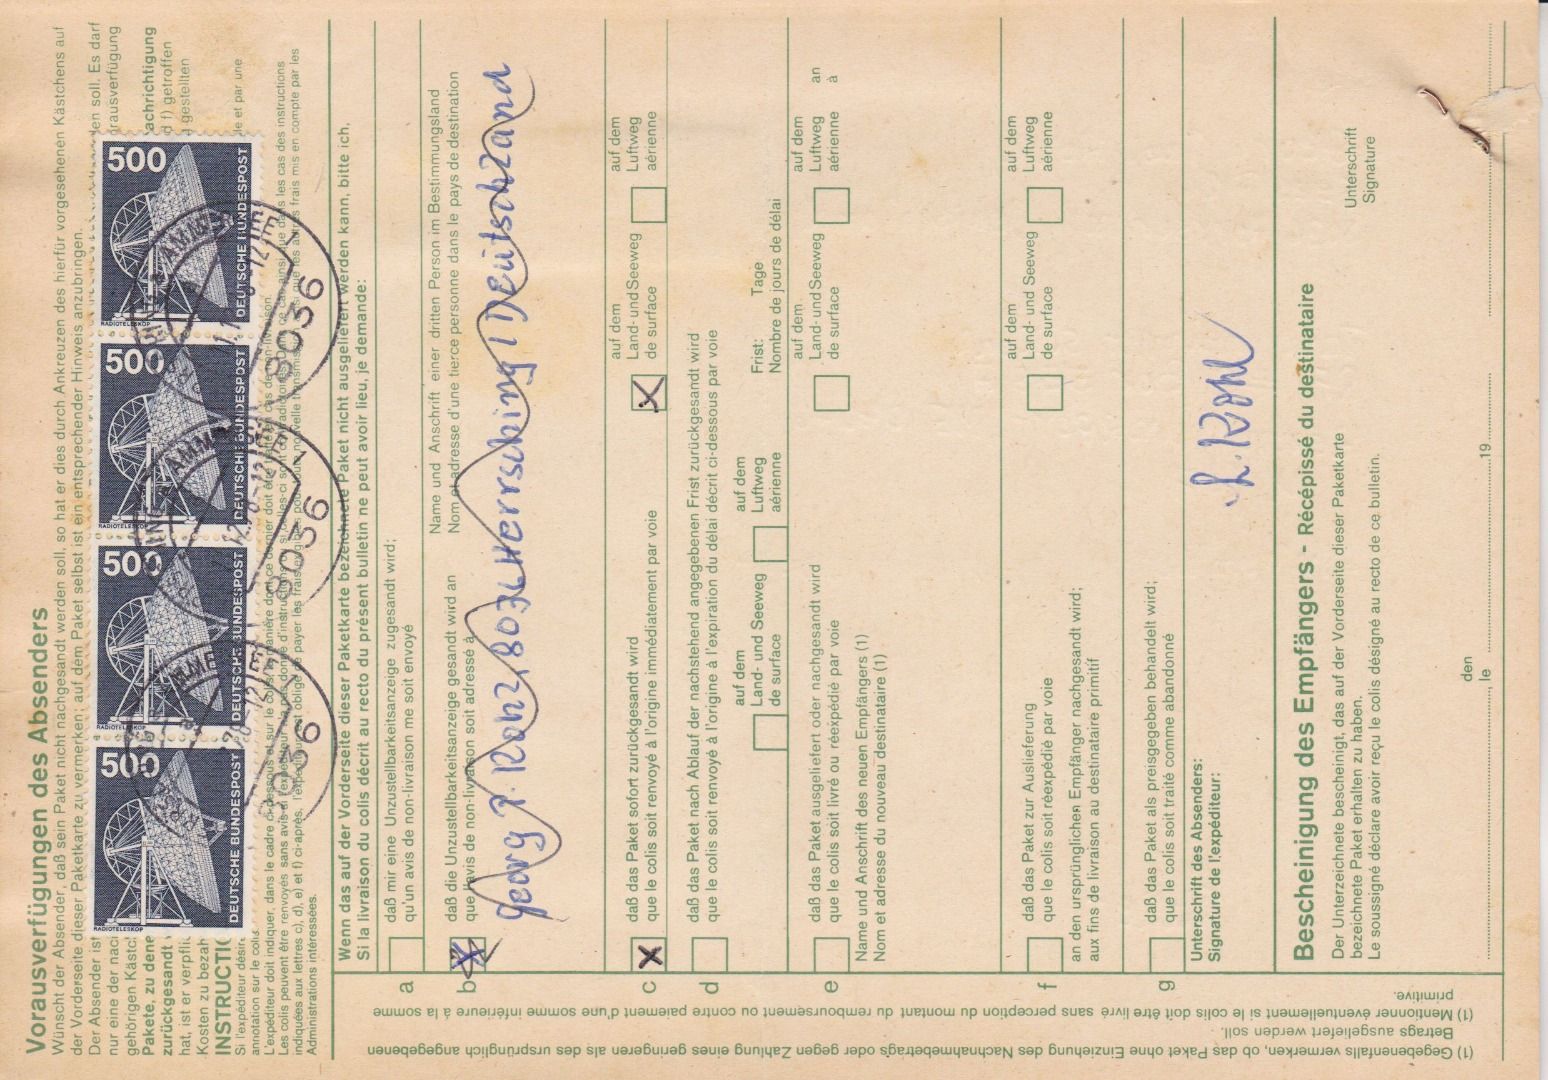 Vorausverfügungen des Absenders
Wünscht der Absender, daß sein Paket nicht nachgesandt werden soll, so hat er dies durch Ankreuzen des hierfür vorgesehenen Kästchens auf
der Vorderseite dieser Paketkarte zu vermerken; auf dem Paket selbst ist ein entsprechender Hinweis anzubringen.
Der Absender ist
den soll. Es darf
nur eine der nac
orausverfügung
gehörigen Kästc
Pakete, zu dene
achrichtigung
zurückgesandt
d f) getroffen
hat, ist er verpfli
gestellten
Kosten zu bezah
INSTRUCTIO
Si l'expéditeur désir
de et par une
annotation sur le colis
L'expéditeur doit indiquer, dans le cadre ci-dessous
Les colis peuvent être renvoyés sans avis
les cas des instructions
indiquées aux lettres c), d), e) et f) ci-après. l'expéditeur
obligé de payer les frais
frais mis en compte par les
Administrations intéressées.
500
RADIOTELESKOP
DEUTSCHE BUNDESPOST
500
RADIOTELESKOP
DEUTSCHE BUNDESPOST
500
RADIOTELESKOP
DEUTSCHE BUNDESPOST
500
RADIOTELESKOP
DEUTSCHE BUNDESPOST
8036
8036
8036
Wenn das auf der Vorderseite dieser Paketkarte bezeichnete Paket nicht ausgeliefert werden kann, bitte ich,
Si la livraison du colis décrit au recto du présent bulletin ne peut avoir lieu, je demande:
a
daß mir eine Unzustellbarkeitsanzeige zugesandt wird;
qu'un avis de non-livraison me soit envoyé
b
X
daß die Unzustellbarkeitsanzeige gesandt wird an
que l'avis de non-livraison soit adressé à
Name und Anschrift einer dritten Person im Bestimmungsland
Nom et adresse d'une tierce personne dans le pays de destination
Georg P. Kohz, 8036 Herrsching / Deutschland
c
X
daß das Paket sofort zurückgesandt wird
que le colis soit renvoyé à l'origine immédiatement par voie
X
auf dem
Land- und Seeweg
de surface
auf dem
Luftweg
aérienne
d
daß das Paket nach Ablauf der nachstehend angegebenen Frist zurückgesandt wird
que le colis soit renvoyé à l'origine à l'expiration du délai décrit ci-dessous par voie
auf dem
Land- und Seeweg
de surface
auf dem
Luftweg
aérienne
Frist: Tage
Nombre de jours de délai
e
daß das Paket ausgeliefert oder nachgesandt wird
que le colis soit livré ou réexpédié par voie
auf dem
Land- und Seeweg
de surface
auf dem
Luftweg
aérienne
an
à
Name und Anschrift des neuen Empfängers (1)
Nom et adresse du nouveau destinataire (1)
f
daß das Paket zur Auslieferung
que le colis soit réexpédié par voie
auf dem
Land- und Seeweg
de surface
auf dem
Luftweg
aérienne
an den ursprünglichen Empfänger nachgesandt wird;
aux fins de livraison au destinataire primitif
g
daß das Paket als preisgegeben behandelt wird;
que le colis soit traité comme abandonné
Unterschrift des Absenders:
Signature de l'expéditeur:
Bescheinigung des Empfängers - Récépissé du destinataire
Der Unterzeichnete bescheinigt, das auf der Vorderseite dieser Paketkarte
bezeichnete Paket erhalten zu haben.
Le soussigné déclare avoir reçu le colis désigné au recto de ce bulletin.
Unterschrift
Signature
den
le
19
(1) Gegebenenfalls vermerken, ob das Paket ohne Einziehung des Nachnahmebetrags oder gegen Zahlung eines geringeren als des ursprünglich angegebenen
Betrags ausgeliefert werden soll.
(1) Mentionner éventuellement si le colis doit être livré sans perception du montant du remboursement ou contre paiement d'une somme inférieure à la somme
primitive.